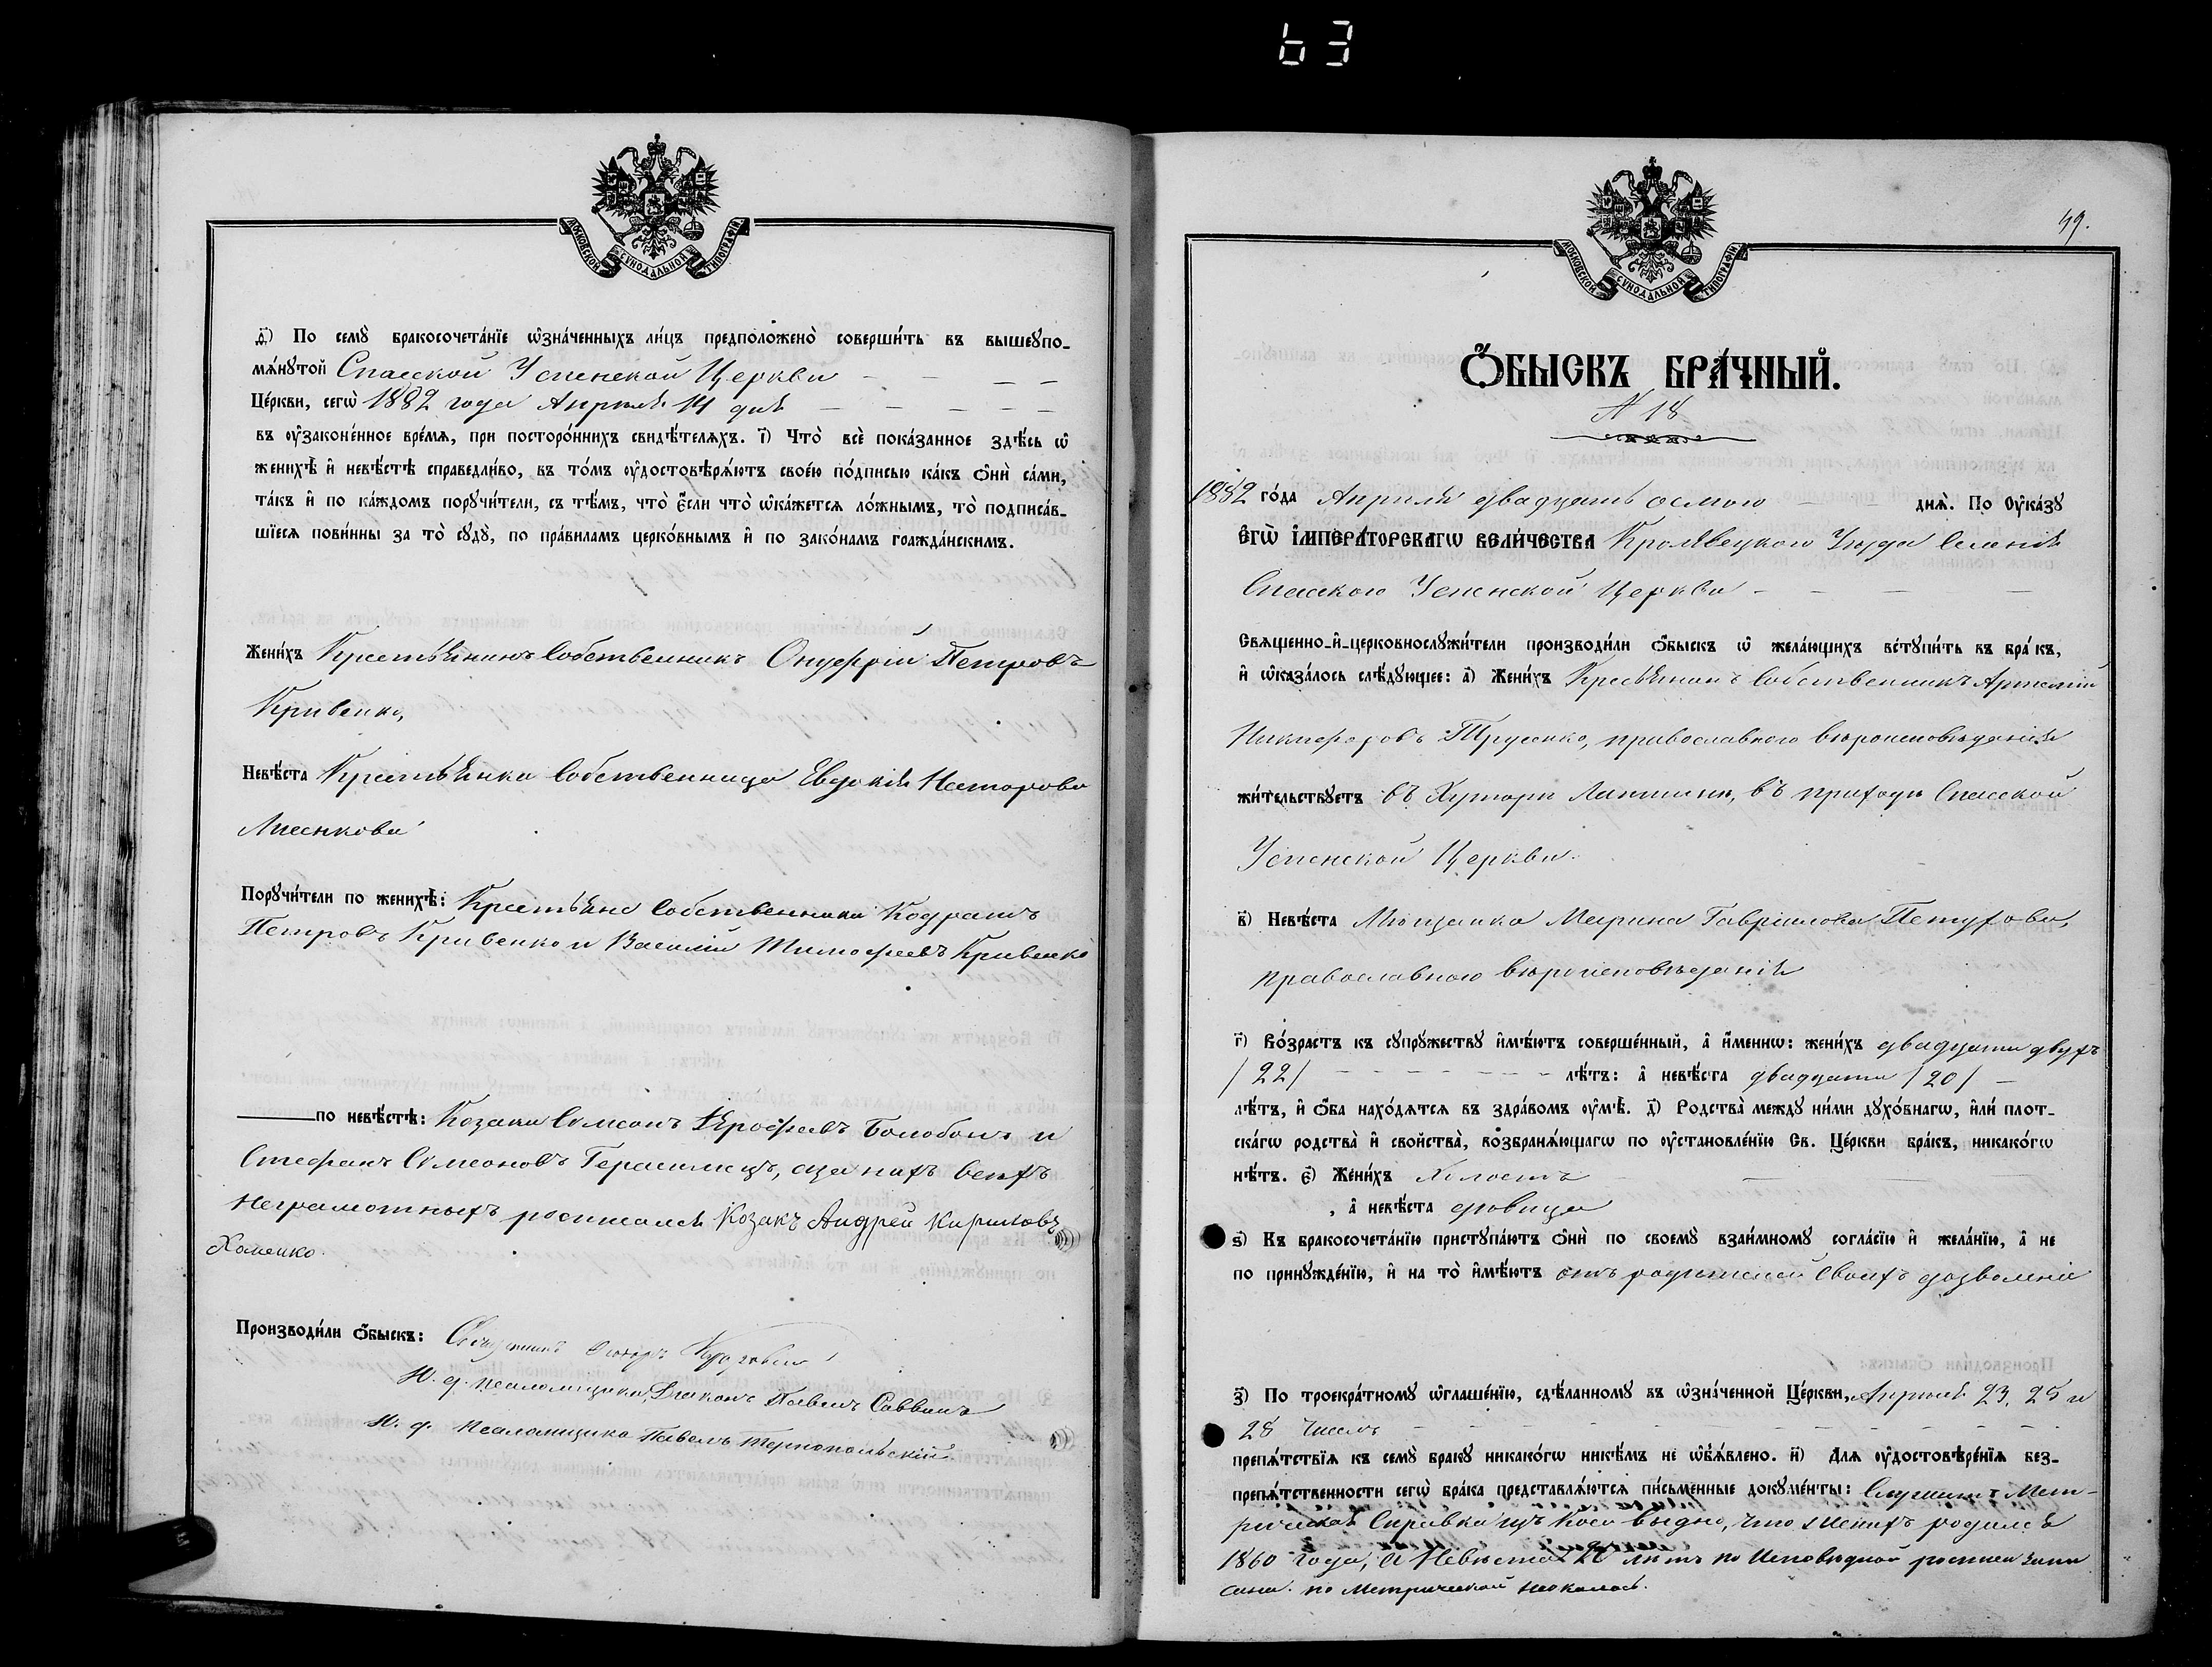 63
МОСКОВСКОЙ СѴНОДАЛЬНОЙ ТИПОГРАФІИ
ѳ҃) По семꙋ̀ бракосочета́нїе ѡ҆зна́ченныхъ ли́цъ предположено̀ соверши́ть въ вышеꙋпо-
мѧ́нꙋтой Спасской Успенской Церкви
Це́ркви, сегѡ̀ 1882 года Апрѣля 14 дня
въ ᲂу҆законе́нное вре́мѧ, при посторо́ннихъ свидѣ́телѧхъ. і҃) Что̀ всѐ пока́занное здѣ́сь ѡ҆
женихѣ̀ и҆ невѣ́стѣ справедли́во, въ то́мъ ᲂу҆достовѣрѧ́ютъ свое́ю по́дписью ка́къ ѻ҆нѝ са́ми,
та́къ и҆ по ка́ждомъ порꙋчи́тели, съ тѣ́мъ, что̀ є҆́сли что̀ ѡ҆ка́жетсѧ ло́жнымъ, то̀ подписа́в-
шїесѧ пови́нны за то̀ сꙋдꙋ̀, по пра́виламъ церко́внымъ и҆ по зако́намъ гражда́нскимъ.
Жени́хъ Крестьянинъ Собственникъ Онуфрій Петровъ
Кривенко,
Невѣ́ста Крестьянка Собственница Евдокія Несторова
Лисенкова
Порꙋчи́тели по женихѣ̀: Крестьяне Собственники Кодратъ
Петровъ Кривенко и Василій Тимофеевъ Кривенко
по невѣ́стѣ: Козаки Симеонъ Ерофеевъ и
Стефанъ Симеоновъ Герасимецъ, а за нихъ всѣхъ
неграмотныхъ росписался Козакъ Андрей Кириловъ
Хоменко.
Производи́ли ѻ҆́быскъ: Священникъ
И. д. псаломщика, Діаконъ Павелъ Саввинъ
И. д. Псаломщика Павелъ Тернопольскій
МОСКОВСКОЙ СѴНОДАЛЬНОЙ ТИПОГРАФІИ
49.
Ѻ҆́БЫСКЪ БРА́ЧНЫЙ.
№ 18
1882 го́да Апрѣля двадцать осмого днѧ̀. По Оу҆ка́зꙋ
Є҆гѡ̀ І҆мпера́торскагѡ вели́чества Кролевецкого Уѣзда Селенія
Спасского Успенской Церкви
Свѧще́нно-и҆-церковнослꙋжи́тели производи́ли ѻ҆́быскъ ѡ҆ жела́ющихъ встꙋпи́ть въ бра́къ,
и҆ ѡ҆каза́лось слѣ́дꙋющее: а҃) Жени́хъ Кресьянинъ Собственникъ Артемій
Никифоровъ Трусенко, православного вѣроисповѣданія
жи́тельствꙋетъ въ Хуторѣ Лапшинѣ, въ приходѣ Спасской
Успенской Церкви.
в҃) Невѣ́ста Мѣщанка Марина Гаврилова Петухова,
православного вѣроисповѣданія
г҃) Во́зрастъ къ сꙋпрꙋ́жествꙋ и҆мѣ́ютъ соверше́нный, а҆ и҆́меннѡ: жени́хъ двадцати двухъ
/22/ лѣ́тъ: а҆ невѣ́ста двадцати /20/
лѣ́тъ, и҆ ѻ҆́ба нахо́дѧтсѧ въ здра́вомъ ᲂу҆мѣ̀. д҃) Родства̀ междꙋ ни́ми дꙋхо́внагѡ, и҆лѝ плот-
ска́гѡ родства̀ и҆ свойства̀, возбранѧ́ющагѡ по ᲂу҆становле́нїю Св. Це́ркви бра́къ, никако́гѡ
нѣ́тъ. є҃) Жени́хъ Холостъ
, а҆ невѣ́ста дѣвица
ѕ҃) Къ бракосочета́нїю пристꙋпа́ютъ ѻ҆нѝ по своемꙋ̀ взаи́мномꙋ согла́сїю и҆ жела́нїю, а҆ не
по принꙋжде́нїю, и҆ на то̀ и҆мѣ́ютъ отъ родителей своихъ дозволеніе
з҃) По троекра́тномꙋ ѡ҆глаше́нїю, сдѣ́ланномꙋ въ ѡ҆зна́ченной Це́ркви, Апрѣля 23, 25 и
28 числъ
препѧ́тствїѧ къ семꙋ̀ бракꙋ никако́гѡ никѣ́мъ не ѡ҆б̾ѧ́влено. и҃) Длѧ ᲂу҆достовѣре́нїѧ без-
препѧ́тственности сегѡ̀ бра́ка представлѧ́ютсѧ пи́сьменные докꙋме́нты: Служитъ Мет-
рическая Справка изъ коей видно, что женихъ родился
1860 года, а Невѣста 20 лѣтъ по Исповѣдной росписи запи
сана. по Метрической неокалась.